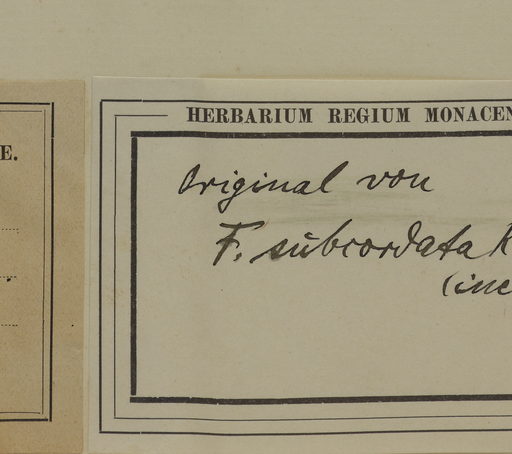 E.
HERBARIUM REGIUM MONACEN
Original von
F. subcordata
(inc